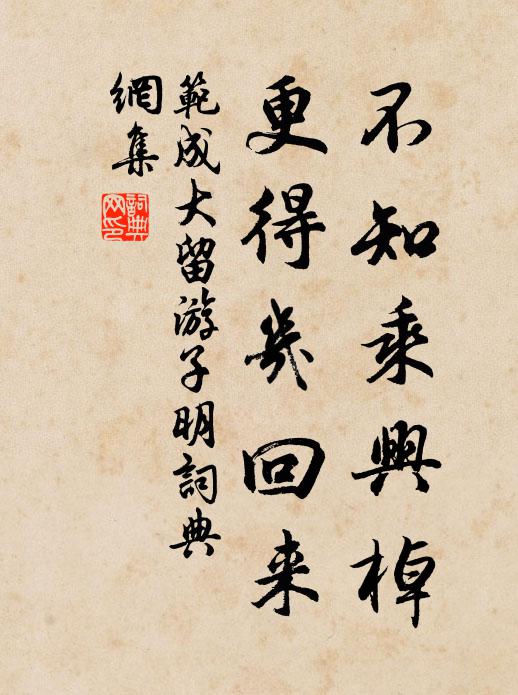 不知乘興棹
更得幾回来
範成大留游子明詞典
網集
詞典网印